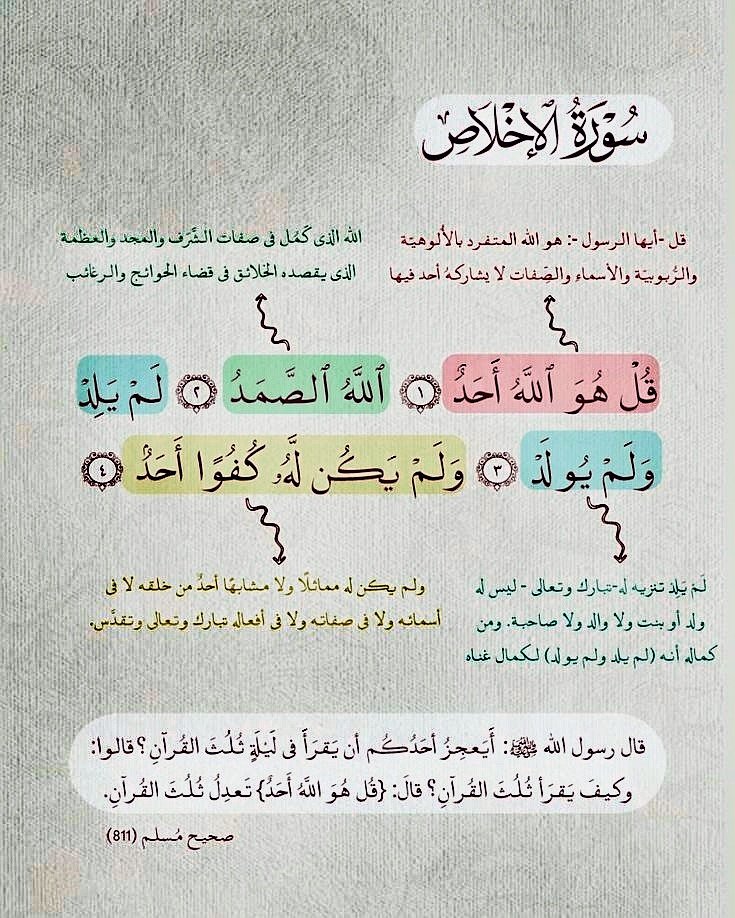 سُوْرَةُ الإِخْلَاصِ
قل -أيها الرسول -: هو الله المتفرد بالألوهيّة
والرُّبوبيّة والأسماءِ والصِّفات لا يشاركهُ أحد فيها
الله الذى كَمُل فى صفات الشَّرَف والمجد والعظمة
الذى يقصده الخلائق فى قضاء الحوائج والرغائب
قُلْ هُوَ ٱللَّهُ أَحَدٌ ١ ٱللَّهُ ٱلصَّمَدُ ٢ لَمْ يَلِدْ
وَلَمْ يُولَدْ ٣ وَلَمْ يَكُن لَّهُۥ كُفُوًا أَحَدٌۢ ٤
لَمْ يَلِدْ تنزيه له-تبارك وتعالى - ليس له
ولد أو بنت ولا والد ولا صاحبة. ومن
كماله أنه (لم يلد ولم يولد) لكمال غناه
ولم يكن له مماثلًا ولا مشابهًا أحدٌ من خلقه لا فى
أسمائه ولا فى صفاته ولا فى أفعاله تبارك وتعالى وتقدَّس.
قال رسول الله ﷺ: أَيَعجِزُ أحَدُكُم أن يَقرَأَ فى لَيْلَةٍ ثُلُثَ القُرآنِ؟ قالوا:
وكيفَ يَقرَأ ثُلُثَ القُرآنِ؟ قالَ: {قُل هُوَ اللَّهُ أَحَدٌ} تَعدِلُ ثُلُثَ القُرآنِ.
صحيح مُسلم (811)